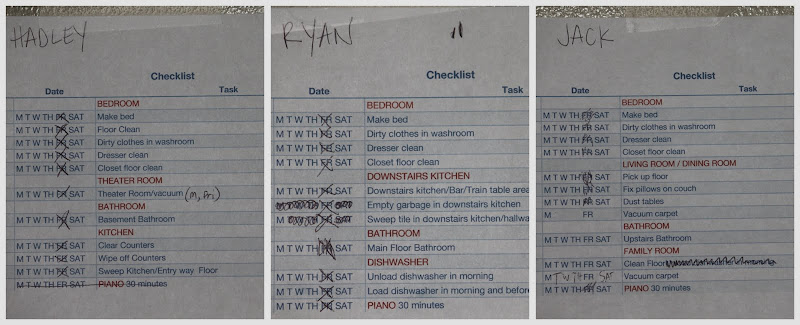 HADLEY
Checklist
Date Task
BEDROOM
M T W TH FR SAT Make bed
M T W TH FR SAT Floor Clean
M T W TH FR SAT Dirty clothes in washroom
M T W TH FR SAT Dresser clean
M T W TH FR SAT Closet floor clean
THEATER ROOM
M T W TH FR SAT Theater Room/vacuum (M, Fri)
BATHROOM
M T W TH FR SAT Basement Bathroom
KITCHEN
M T W TH FR SAT Clear Counters
M T W TH FR SAT Wipe off Counters
M T W TH FR SAT Sweep Kitchen/Entry way Floor
M T W TH FR SAT PIANO 30 minutes
RYAN
Checklist
Date Task
BEDROOM
M T W TH FR SAT Make bed
M T W TH FR SAT Dirty clothes in washroom
M T W TH FR SAT Dresser clean
M T W TH FR SAT Closet floor clean
DOWNSTAIRS KITCHEN
M T W TH FR SAT Downstairs kitchen/Bar/Train table area
Empty garbage in downstairs kitchen
M Sweep tile in downstairs kitchen/hallwa
BATHROOM
M T W TH FR SAT Main Floor Bathroom
DISHWASHER
M T W TH FR SAT Unload dishwasher in morning
M T W TH FR SAT Load dishwasher in morning and before
M T W TH FR SAT PIANO 30 minutes
JACK
Checklist
Date Task
BEDROOM
M T W TH FR SAT Make bed
M T W TH FR SAT Dirty clothes in washroom
M T W TH FR SAT Dresser clean
M T W TH FR SAT Closet floor clean
LIVING ROOM / DINING ROOM
M T W TH FR SAT Pick up floor
M T W TH FR SAT Fix pillows on couch
M T W TH FR SAT Dust tables
M FR Vacuum carpet
BATHROOM
M T W TH FR SAT Upstairs Bathroom
FAMILY ROOM
M T W TH FR SAT Clean Floor
M T W TH FR SAT Vacuum carpet
M T W TH FR SAT PIANO 30 minutes